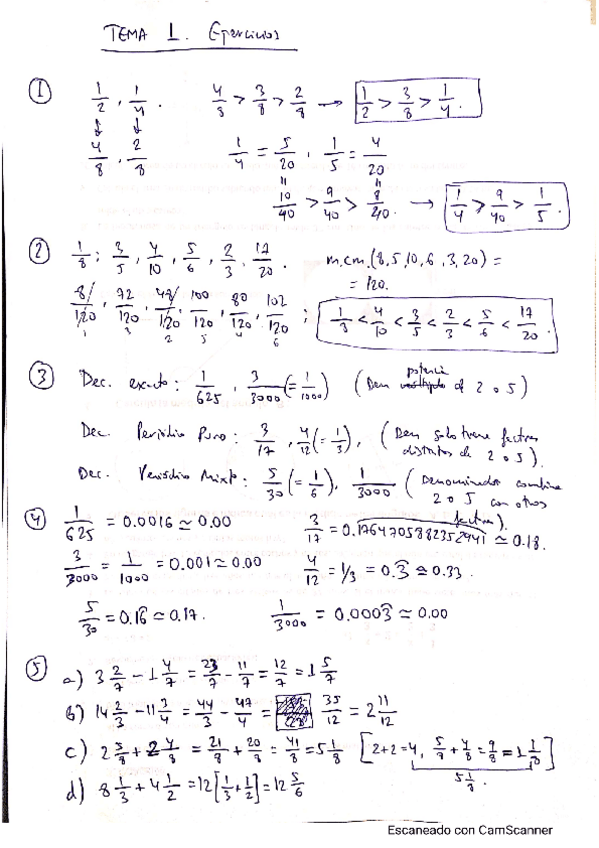 TEMA 1. Ejercicios
① 1/2, 1/4. 4/8 > 3/8 > 2/8 → 1/2 > 3/8 > 1/4.
↓ ↓
4/8, 2/8 1/4 = 5/20, 1/5 = 4/20
10/40 > 9/40 > 8/40. → 1/4 > 9/40 > 1/5.
② 1/8; 3/5, 4/10, 5/6, 2/3, 17/20. m.c.m.(8,5,10,6,3,20) =
= 120.
/120, 72/120, 48/120, 100/120, 80/120, 102/120; 1/3 < 4/10 < 3/5 < 2/3 < 5/6 < 17/20.
1 3 2 5 4 6
③ Dec. exacto: 1/625, 3/3000 (= 1/1000) (Den potencia de 2 o 5)
Dec. Periódico Puro: 3/17, 4/12 (= 1/3), (Den solo tiene factores
distintos de 2 o 5).
Dec. Periódico Mixto: 5/30 (= 1/6), 1/3000 (Denominador combina
2 o 5 con otros
factores).
④ 1/625 = 0.0016 ≃ 0.00 3/17 = 0.1764705882352941 ≃ 0.18.
3/3000 = 1/1000 = 0.001 ≃ 0.00 4/12 = 1/3 = 0.3 ≃ 0.33.
5/30 = 0.16 ≃ 0.17. 1/3000 = 0.0003 ≃ 0.00
⑤ a) 3 2/7 − 1 4/7 = 23/7 − 11/7 = 12/7 = 1 5/7
b) 14 2/3 − 11 3/4 = 44/3 − 47/4 = 35/12 = 2 11/12
c) 2 5/8 + 2 4/8 = 21/8 + 20/8 = 41/8 = 5 1/8 [2+2=4, 5/8 + 4/8 = 9/8 = 1 1/8]
5 1/8.
d) 8 1/3 + 4 1/2 = 12[1/3 + 1/2] = 12 5/6
Escaneado con CamScanner